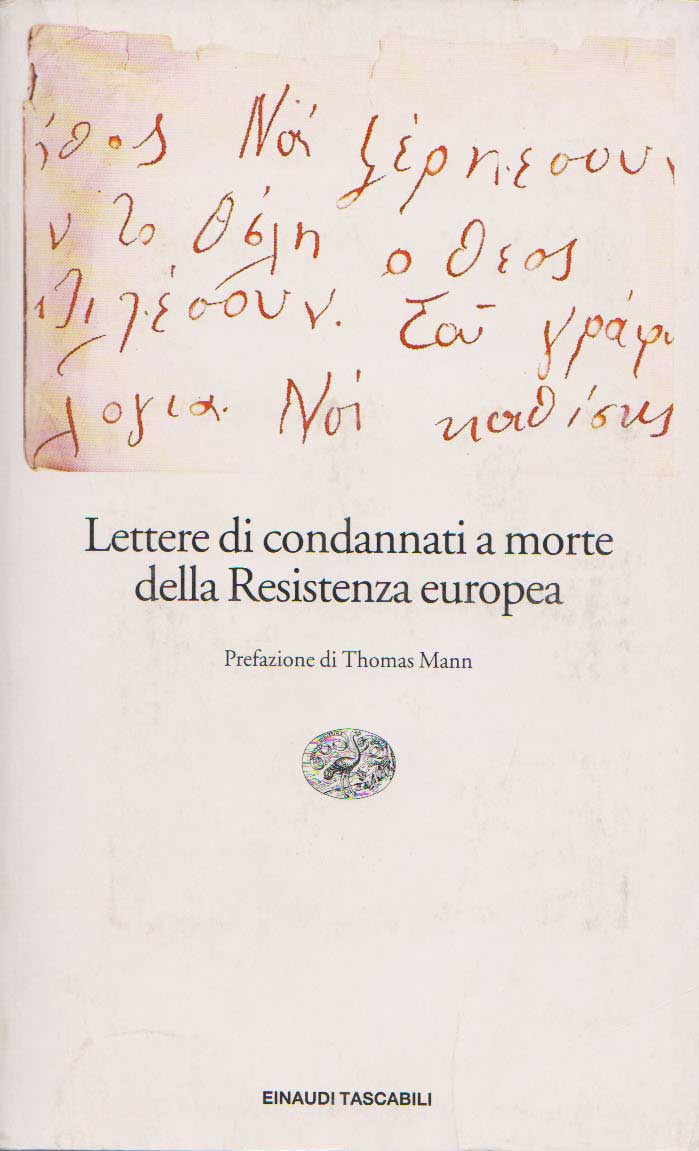 Νά ξέρης
ν το θέλη ο θεος
Σοῦ γράφ
λογια. Νά καθίσης
Lettere di condannati a morte
della Resistenza europea
Prefazione di Thomas Mann
EINAUDI TASCABILI